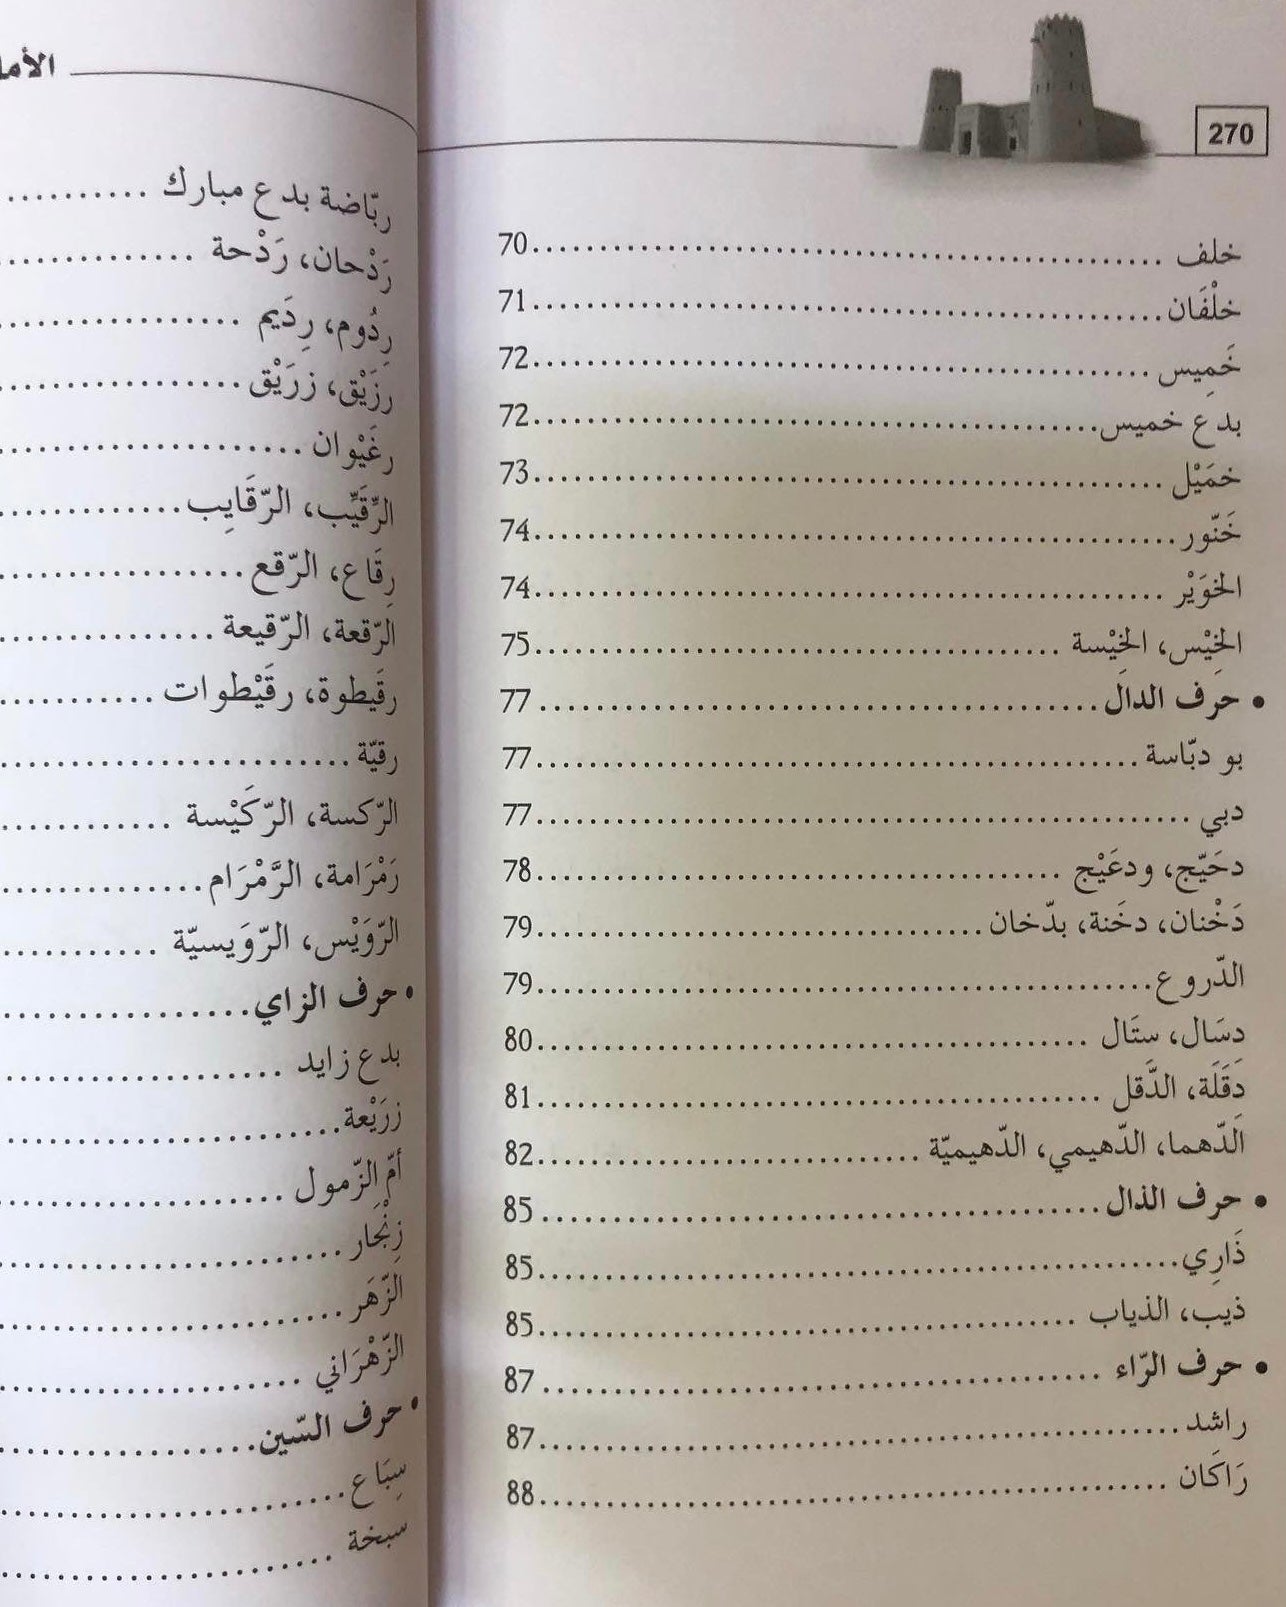 270
خلف ........ 70
خلْفَان ........ 71
خَمِيس ........ 72
بدع خميس ........ 72
خمَيْل ........ 73
خَنّور ........ 74
الخوَيْر ........ 74
الخِيْس، الخِيْسة ........ 75
• حرف الدال ........ 77
بو دبّاسة ........ 77
دبي ........ 77
دحَيّج، ودعَيْج ........ 78
دَخْنان، دخَنة، بدّخان ........ 79
الدّروع ........ 79
دِسَال، سِتَال ........ 80
دَقَلَة، الدَّقل ........ 81
الدّهما، الدّهيمي، الدّهيميّة ........ 82
• حرف الذال ........ 85
ذَارِي ........ 85
ذيب، الذياب ........ 85
• حرف الرّاء ........ 87
راشد ........ 87
رَاكَان ........ 88
ربّاضة بدع مبارك ........
رَدْحان، رَدْحة ........
رِدُوم، رِدَيم ........
رزَيْق، زرَيْق ........
رغَيْوان ........
الرِّقَيِّب، الرّقَايِب ........
رِقَاع، الرّقع ........
الرّقعة، الرّقيعة ........
رقَيطوة، رقَيْطوات ........
رقيّة ........
الرّكسة، الرّكَيْسة ........
رَمْرَامة، الرَّمْرَام ........
الرّوَيْس، الرّوَيسيّة ........
• حرف الزاي ........
بدع زايد ........
زرَيْعة ........
أمّ الزّمول ........
زِنْجَار ........
الزّهَر ........
الزّهْرَاني ........
• حرف السّين ........
سِبَاع ........
سبخة ........